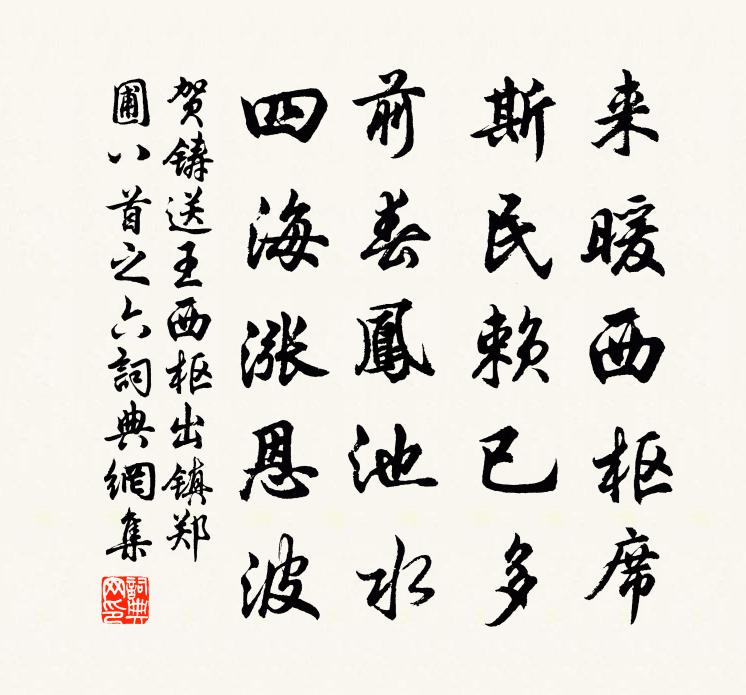 来暖西枢席
斯民赖已多
前春鳳池水
四海涨恩波
贺铸送王西枢出镇郑
圃八首之六詞典網集
詞典网印